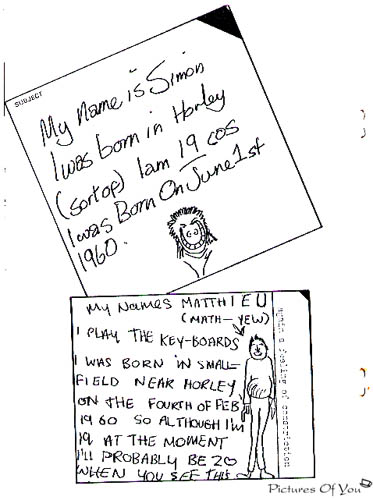 SUBJECT
My Name is Simon
I was born in Horley
(sortop) Iam 19 cos
I was Born On June 1st
1960.
MY NAMES MATTHIEU
(MATH-YEW)
I PLAY THE KEY-BOARDS
I WAS BORN IN SMALL-
FIELD NEAR HORLEY
ON THE FOURTH OF FEB
1960 SO ALTHOUGH I'M
19 AT THE MOMENT
I'LL PROBABLY BE 20
WHEN YOU SEE THIS
Pictures Of You